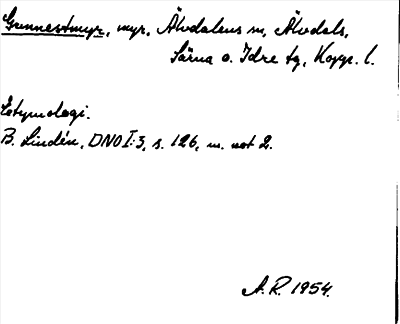 Gunnestmyr, myr, Älvdalens sn, Älvdals,
Särna o. Idre tg, Kopp. l.
Etymologi.
B. Lindén, DNO I:3, s. 126, m. not 2.
A. R. 1954.